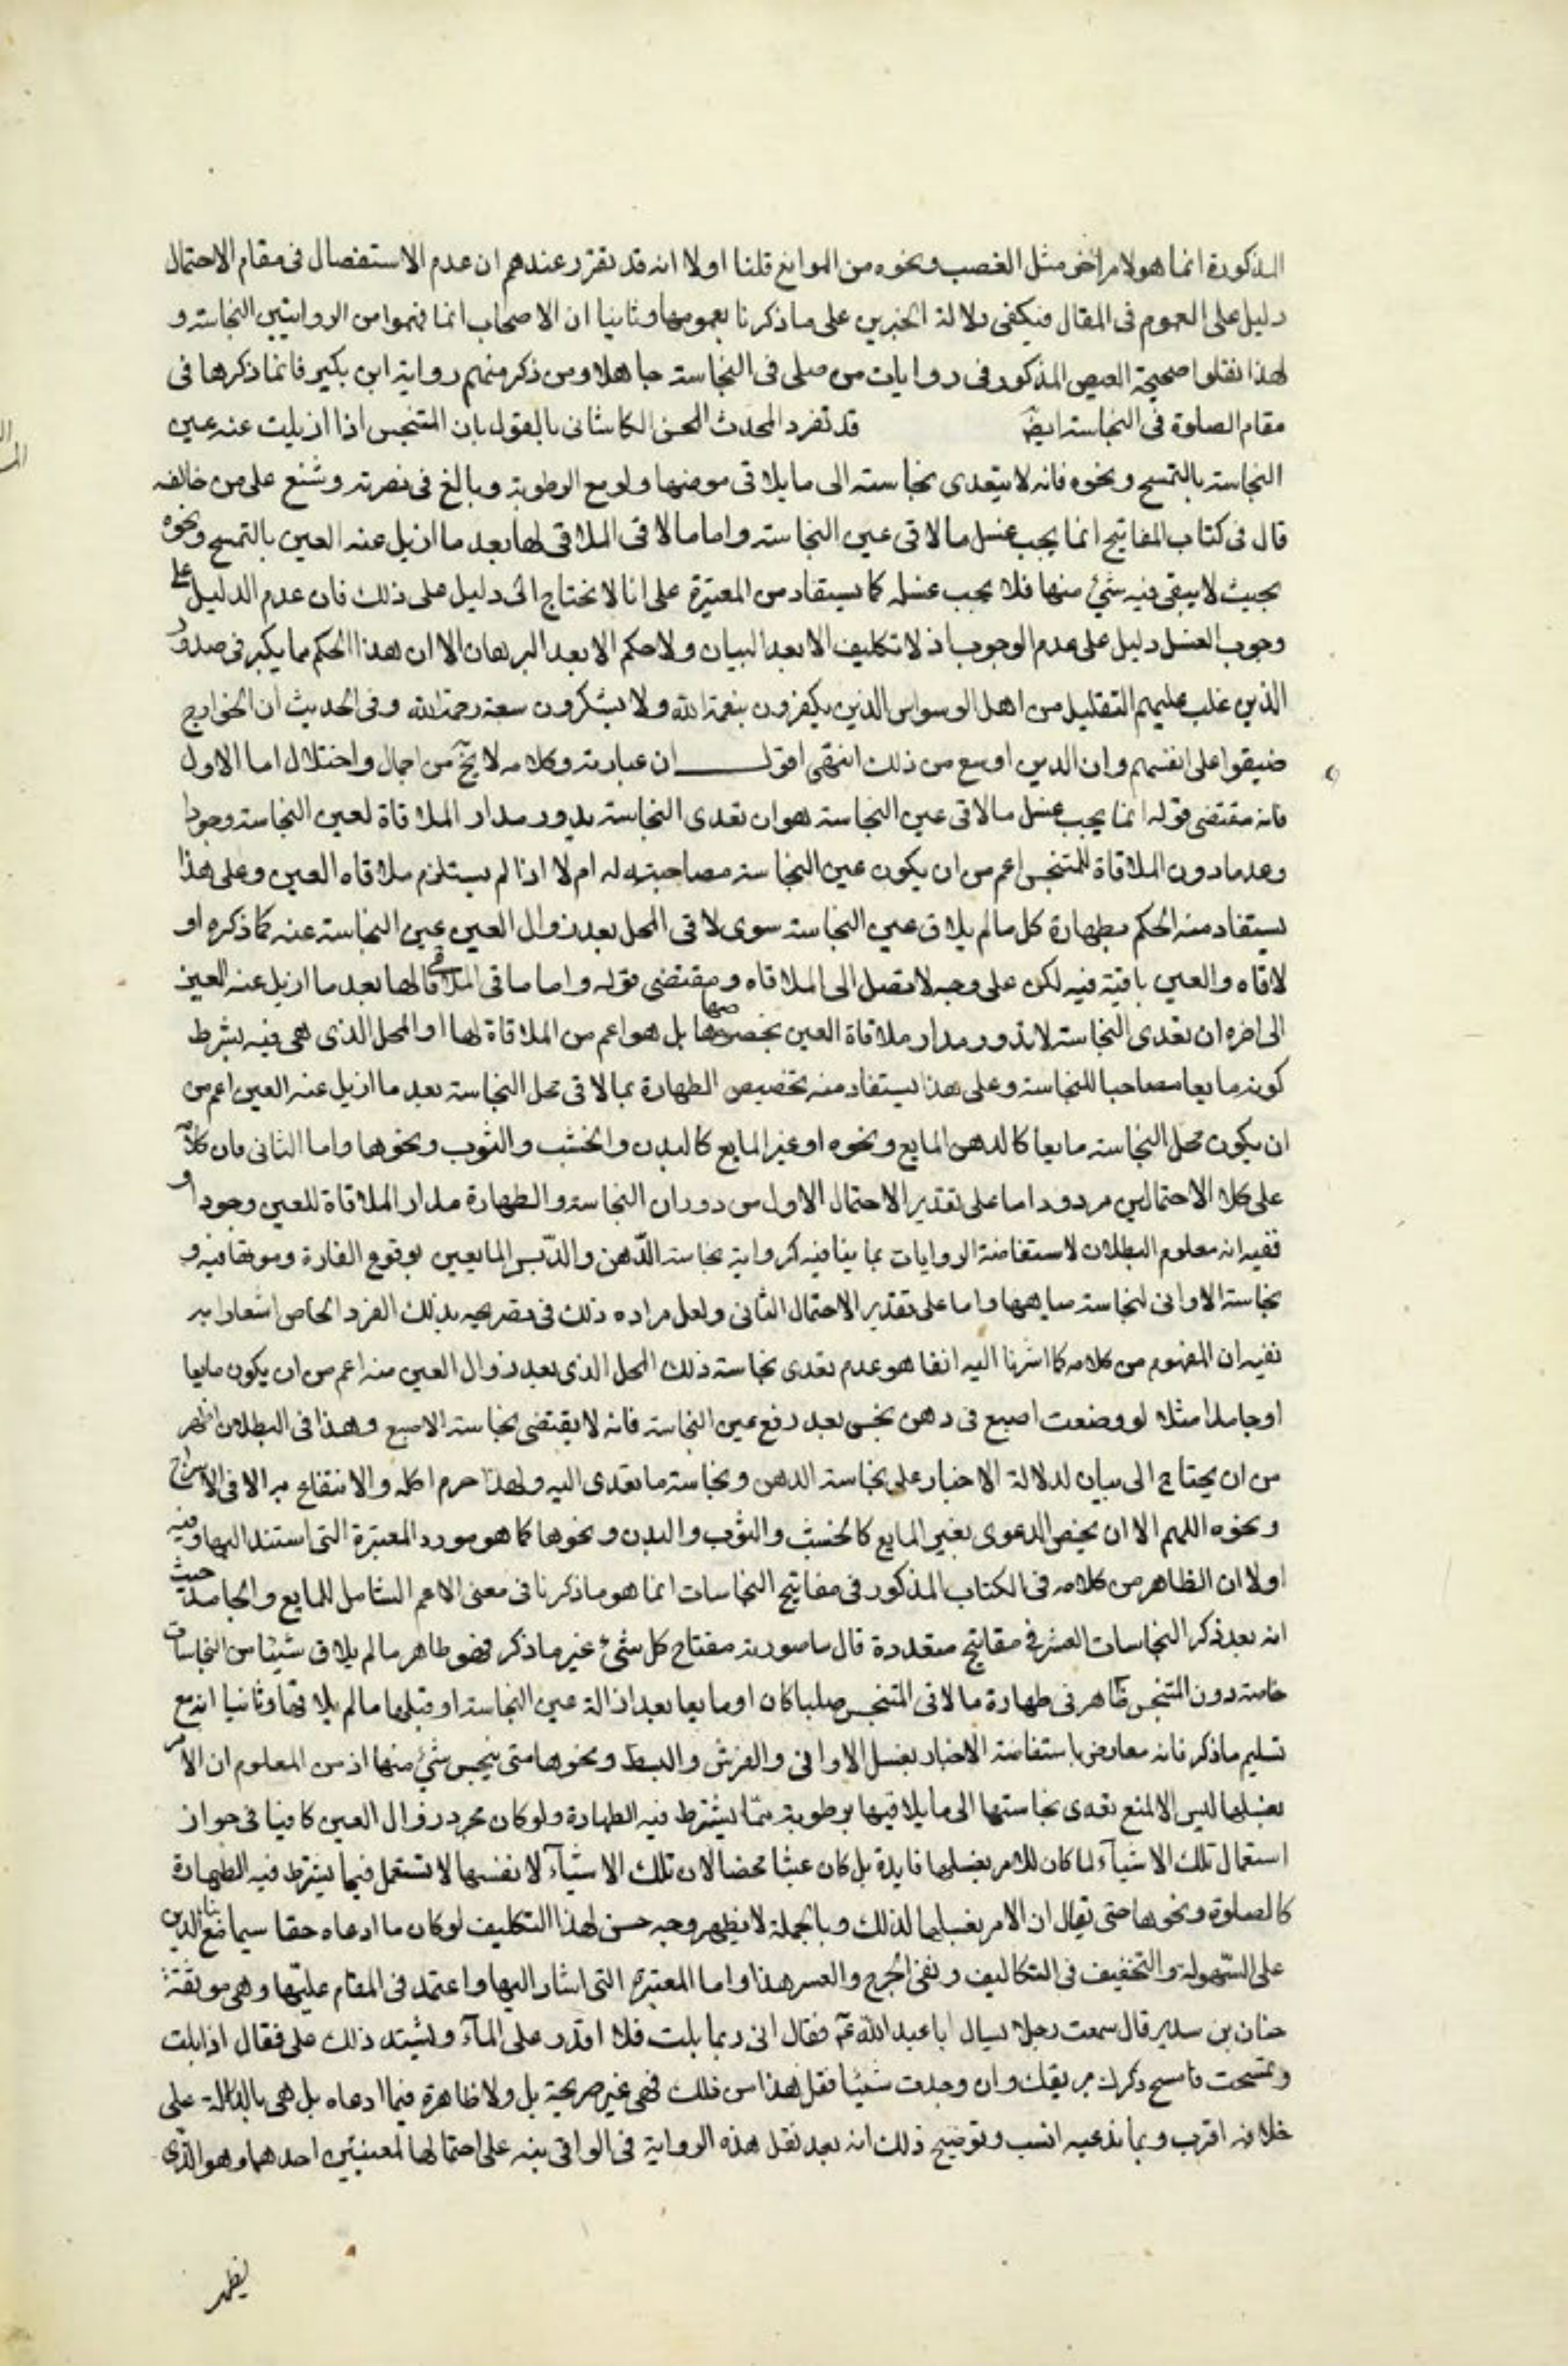 المذكورة انما هو لامر اخر مثل الغصب ونحوه من الموانع قلنا اولا انه قد تقرر عندهم ان عدم الاستفصال فى مقام الاحتمال
دليل على العموم فى المقال فيكفى دلالة الخبرين على ما ذكرنا بعمومها وثانيا ان الاصحاب انما فهموا من الروايتين النجاسة و
لهذا نقلوا صحيحة العيص المذكور فى روايات من صلى فى النجاسة جاهلا ومن ذكر منهم رواية ابن بكير فانما ذكرها فى
مقام الصلوة فى النجاسة ايضَ قد تفرد المحدث المحسن الكاشانى بالقول بان المتنجس اذا ازيلت عنه عين
النجاسة بالتمسح ونحوه فانه لا يتعدى نجاسته الى ما يلاقى موضعها ولو مع الرطوبة وبالغ فى نصرته وشنع على من خالفه
قال فى كتاب المفاتيح انما يجب غسل ما لاقى عين النجاسة واما ما لاقى الملاقى لها بعد ما ازيل عنه العين بالتمسح ونحوه
بحيث لا يبقى فيه شئ منها فلا يجب غسله كما يستفاد من المعتبرة على انا لا نحتاج الى دليل على ذلك فان عدم الدليل على
وجوب الغسل دليل على عدم الوجوب اذ لا تكليف الا بعد البيان ولا حكم الا بعد البرهان الا ان هذا الحكم مما يكبر فى صدور
الذين غلب عليهم التقليد من اهل الوسواس الذين يكفرون بنعمة الله ولا يشكرون سعة رحمة الله وفى الحديث ان الخوارج
ضيقوا على انفسهم وان الدين اوسع من ذلك انتهى اقول ان عبارته وكلامه لا يخ من اجمال واختلال اما الاول
فانه مقتضى قوله انما يجب غسل ما لاقى عين النجاسة هو ان تعدى النجاسة يدور مدار الملاقاة لعين النجاسة وجودا
وعدما دون الملاقاة للمتنجس اعم من ان يكون عين النجاسة مصاحبة له ام لا اذا لم يستلزم ملاقاه العين وعلى هذا
يستفاد منه الحكم بطهارة كل ما لم يلاق عين النجاسة سوى لاقى المحل بعد زوال العين عين النجاسة عنه كما ذكره او
لاقاه والعين باقية فيه لكن على وجه لا تصل الى الملاقاه ومقتضى قوله واما ما لاقى الملاقى لها بعد ما ازيل عنه العين
الى اخره ان تعدى النجاسة لا يدور مدار ملاقاة العين بخصوصها بل هو اعم من الملاقاة لها او المحل الذى هى فيه بشرط
كونه مايعا مصاحبا للنجاسة وعلى هذا يستفاد منه تخصيص الطهارة بما لاقى محل النجاسة بعد ما ازيل عنه العين اعم من
ان يكون محل النجاسة مايعا كالدهن المايع ونحوه او غير المايع كالبدن والخشب والثوب ونحوها واما الثانى فان كلامه
على كلا الاحتمالين مردود اما على تقدير الاحتمال الاول من دوران النجاسة والطهارة مدار الملاقاة للعين وجودا و
ففيه انه معلوم البطلان لاستفاضة الروايات بما ينافيه كرواية نجاسة الدّهن والدّبس المايعين بوقوع الفارة وموتها فيه و
نجاسة الاوانى لنجاسة مياهها واما على تقدير الاحتمال الثانى ولعل مراده ذلك فى تصريحه بذلك الفرد الخاص اشعارا به
ففيه ان المفهوم من كلامه كما اشرنا اليه انفا هو عدم تعدى نجاسة ذلك المحل الذى بعد زوال العين منه اعم من ان يكون مايعا
او جامدا مثلا لو وضعت اصبع فى دهن نجس بعد رفع عين النجاسة فانه لا يقتضى نجاسة الاصبع وهذا فى البطلان اظهر
من ان يحتاج الى بيان لدلالة الاخبار على نجاسة الدهن ونجاسة ما تعدى اليه ولهذا حرم اكله والانتفاع به الا فى الاسراج
ونحوه اللهم الا ان يخص الدعوى بغير المايع كالخشب والثوب والبدن ونحوها كما هو مورد المعتبرة التى استند اليها وفيه
اولا ان الظاهر من كلامه فى الكتاب المذكور فى مفاتيح النجاسات انما هو ما ذكرنا فى معنى الاعم الشامل للمايع والجامد حيث
انه بعد ذكر النجاسات العشر فى مفاتيح متعددة قال ما صورته مفتاح كل شئ غير ما ذكر فهو طاهر ما لم يلاق شيئا من النجاسات
خاصة دون المتنجس ظاهر فى طهارة ما لاقى المتنجس صلبا كان او مايعا بعد ازالة عين النجاسة او قبلها ما لم يلاقها وثانيا انه مع
تسليم ما ذكر فانه معارض باستفاضة الاخبار بغسل الاوانى والفرش والبسط ونحوها متى ينجس شئ منها اذ من المعلوم ان الامر
بغسلها ليس الا لمنع تعدى نجاستها الى ما يلاقيها برطوبة ممّا يشترط فيه الطهارة ولو كان مجرد زوال العين كافيا فى جواز
استعمال تلك الاشيآء لما كان للامر بغسلها فايدة بل كان عبثا محضا لان تلك الاشيآء لا نفسها لا تستعمل فيما يشترط فيه الطهارة
كالصلوة ونحوها حتى يقال ان الامر بغسلها لذلك وبالجملة لا يظهر وجه حسن لهذا التكليف لو كان ما ادعاه حقا سيما مع بناء الدين
على السّهولة والتخفيف فى التكاليف ونفى الحرج والعسر هذا واما المعتبرة التى اشار اليها واعتمد فى المقام عليها وهى موثقة
حنان بن سدير قال سمعت رجلا يسال ابا عبد الله عَ فقال انى ربما بلت فلا اقدر على المآء ويشتد ذلك على فقال اذا بلت
وتمسحت فامسح ذكرك بريقك وان وجدت شيئا فقل هذا من ذلك فهى غير صريحة بل ولا ظاهرة فيما ادعاه بل هى بالدلالة على
خلافه اقرب وبما ندعيه انسب وتوضيح ذلك انه بعد نقل هذه الرواية فى الوافى نبه على احتمالها لمعنيين احدهما وهو الذى
يظهر